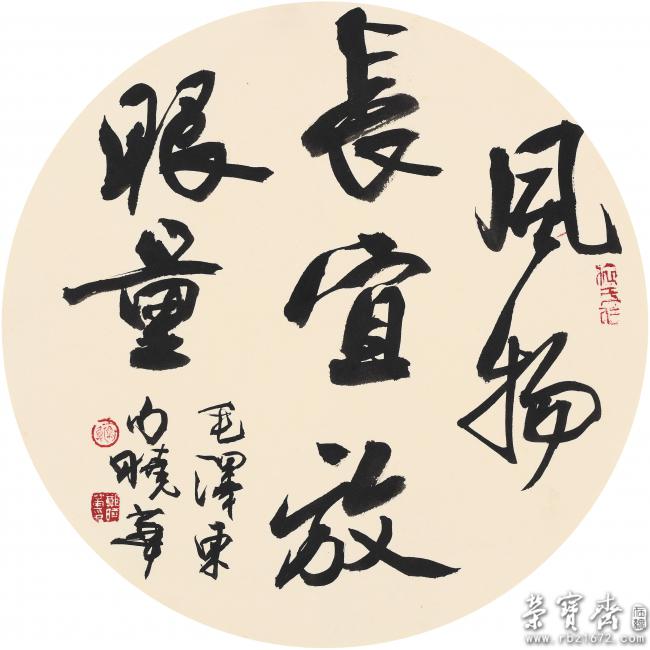 風物
長宜放
眼量
毛澤東
句曉華
榮寶齋
www.rbz1672.com